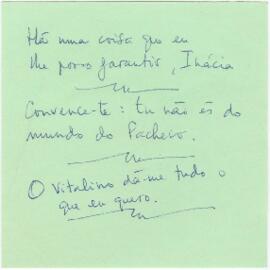 Há uma coisa que eu
lhe posso garantir, Inácia
Convence-te: tu não és do
mundo do Pacheco.
O Vitalino dá-me tudo o
que eu quero.